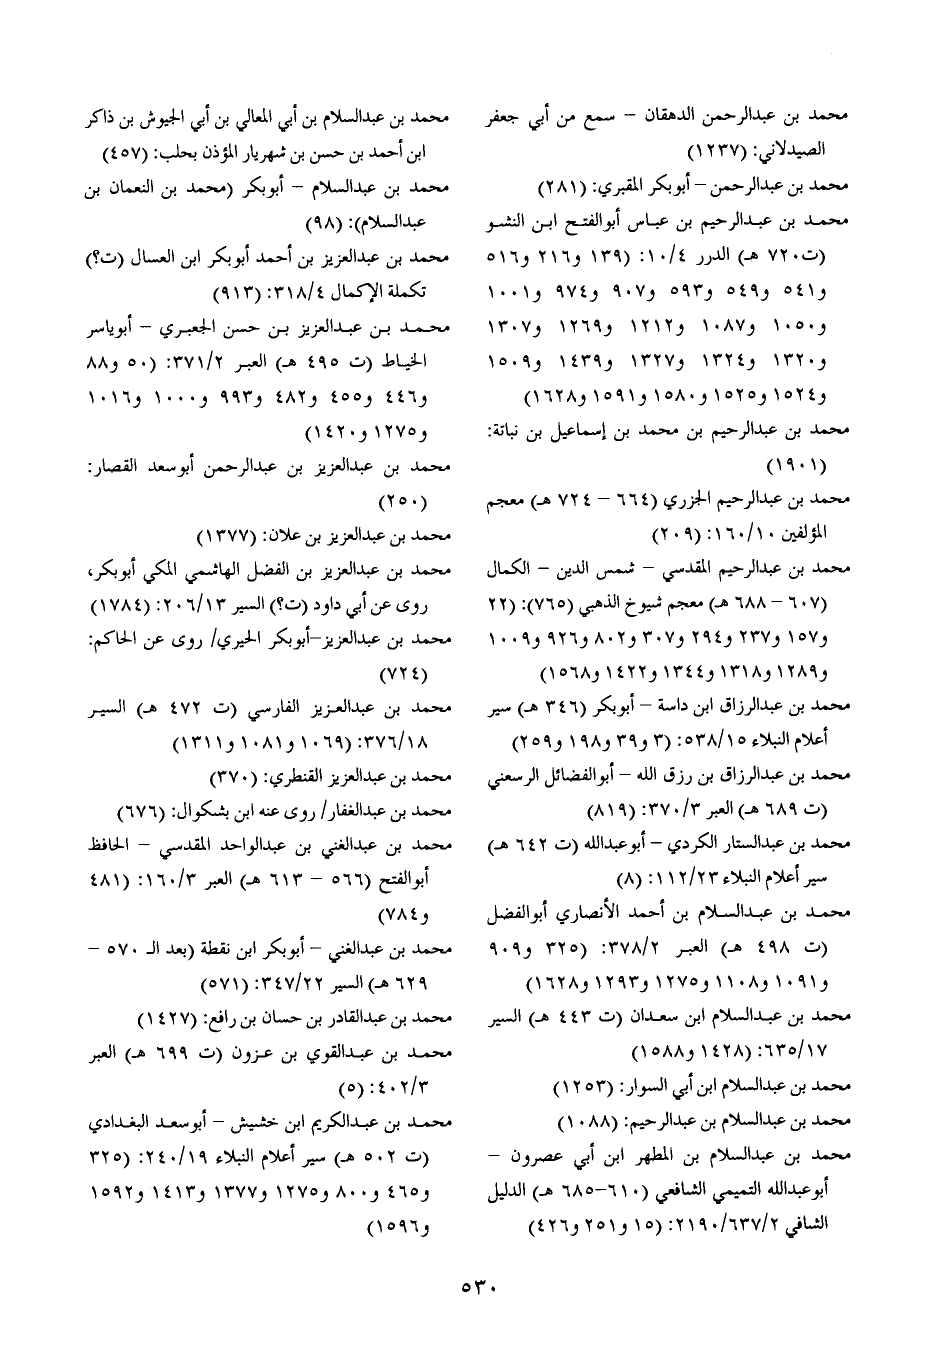 محمد بن عبدالرحمن الدهقان – سمع من أبي جعفر
الصيدلاني: (١٢٣٧)
محمد بن عبدالرحمن – أبوبكر المقبري: (٢٨١)
محمد بن عبدالرحيم بن عباس أبوالفتح ابن النشو
(ت٧٢٠ هـ) الدرر ١٠/٤: (١٣٩ و٢١٦ و٥١٦
و٥٤١ و٥٤٩ و٥٩٣ و٩٠٧ و٩٧٤ و١٠٠١
و١٠٥٠ و١٠٨٧ و١٢١٢ و١٢٦٩ و١٣٠٧
و١٣٢٠ و١٣٢٤ و١٣٢٧ و١٤٣٩ و١٥٠٩
و١٥٢٤ و١٥٢٥ و١٥٨٠ و١٥٩١ و١٦٢٨)
محمد بن عبدالرحيم بن محمد بن إسماعيل بن نباتة:
(١٩٠١)
محمد بن عبدالرحيم الجزري (٦٦٤ – ٧٢٤ هـ) معجم
المؤلفين ١٦٠/١٠: (٢٠٩)
محمد بن عبدالرحيم المقدسي – شمس الدين – الكمال
(٦٠٧ – ٦٨٨ هـ) معجم شيوخ الذهبي (٧٦٥): (٢٢
و١٥٧ و٢٣٧ و٢٩٤ و٣٠٧ و٨٠٢ و٩٢٦ و١٠٠٩
و١٢٨٩ و١٣١٨ و١٣٤٤ و١٤٢٢ و١٥٦٨)
محمد بن عبدالرزاق ابن داسة – أبوبكر (٣٤٦ هـ) سير
أعلام النبلاء ٥٣٨/١٥: (٣ و٣٩ و١٩٨ و٢٥٩)
محمد بن عبدالرزاق بن رزق الله – أبوالفضائل الرسعني
(ت ٦٨٩ هـ) العبر ٣٧٠/٣: (٨١٩)
محمد بن عبدالستار الكردي – أبوعبدالله (ت ٦٤٢ هـ)
سير أعلام النبلاء ١١٢/٢٣: (٨)
محمد بن عبدالسلام بن أحمد الأنصاري أبوالفضل
(ت ٤٩٨ هـ) العبر ٣٧٨/٢: (٣٢٥ و٩٠٩
و١٠٩١ و١١٠٨ و١٢٧٥ و١٢٩٣ و١٦٢٨)
محمد بن عبدالسلام ابن سعدان (ت ٤٤٣ هـ) السير
٦٣٥/١٧: (١٤٢٨ و١٥٨٨)
محمد بن عبدالسلام ابن أبي السوار: (١٢٥٣)
محمد بن عبدالسلام بن عبدالرحيم: (١٠٨٨)
محمد بن عبدالسلام بن المطهر ابن أبي عصرون –
أبوعبدالله التميمي الشافعي (٦١٠–٦٨٥ هـ) الدليل
الشافي ٢١٩٠/٦٣٧/٢: (١٥ و٢٥١ و٤٢٦)
محمد بن عبدالسلام بن أبي المعالي بن أبي الجيوش بن ذاكر
ابن أحمد بن حسن بن شهريار المؤذن بحلب: (٤٥٧)
محمد بن عبدالسلام – أبوبكر (محمد بن النعمان بن
عبدالسلام): (٩٨)
محمد بن عبدالعزيز بن أحمد أبوبكر ابن العسال (ت؟)
تكملة الإكمال ٣١٨/٤: (٩١٣)
محمد بن عبدالعزيز بن حسن الجعبري – أبوياسر
الخياط (ت ٤٩٥ هـ) العبر ٣٧١/٢: (٥٠ و٨٨
و٤٤٦ و٤٥٥ و٤٨٢ و٩٩٣ و١٠٠٠ و١٠١٦
و١٢٧٥ و١٤٢٠)
محمد بن عبدالعزيز بن عبدالرحمن أبوسعد القصار:
(٢٥٠)
محمد بن عبدالعزيز بن علان: (١٣٧٧)
محمد بن عبدالعزيز بن الفضل الهاشمي المكي أبوبكر،
روى عن أبي داود (ت؟) السير ٢٠٦/١٣: (١٧٨٤)
محمد بن عبدالعزيز–أبوبكر الحيري/ روى عن الحاكم:
(٧٢٤)
محمد بن عبدالعزيز الفارسي (ت ٤٧٢ هـ) السير
٣٧٦/١٨: (١٠٦٩ و١٠٨١ و١٣١١)
محمد بن عبدالعزيز القنطري: (٣٧٠)
محمد بن عبدالغفار/ روى عنه ابن بشكوال: (٦٧٦)
محمد بن عبدالغني بن عبدالواحد المقدسي – الحافظ
أبوالفتح (٥٦٦ – ٦١٣ هـ) العبر ١٦٠/٣: (٤٨١
و٧٨٤)
محمد بن عبدالغني – أبوبكر ابن نقطة (بعد الـ ٥٧٠ –
٦٢٩ هـ) السير ٣٤٧/٢٢: (٥٧١)
محمد بن عبدالقادر بن حسان بن رافع: (١٤٢٧)
محمد بن عبدالقوي بن عزون (ت ٦٩٩ هـ) العبر
٤٠٢/٣: (٥)
محمد بن عبدالكريم ابن خشيش – أبوسعد البغدادي
(ت ٥٠٢ هـ) سير أعلام النبلاء ٢٤٠/١٩: (٣٢٥
و٤٦٥ و٨٠٠ و١٢٧٥ و١٣٧٧ و١٤١٣ و١٥٩٢
و١٥٩٦)
٥٣٠